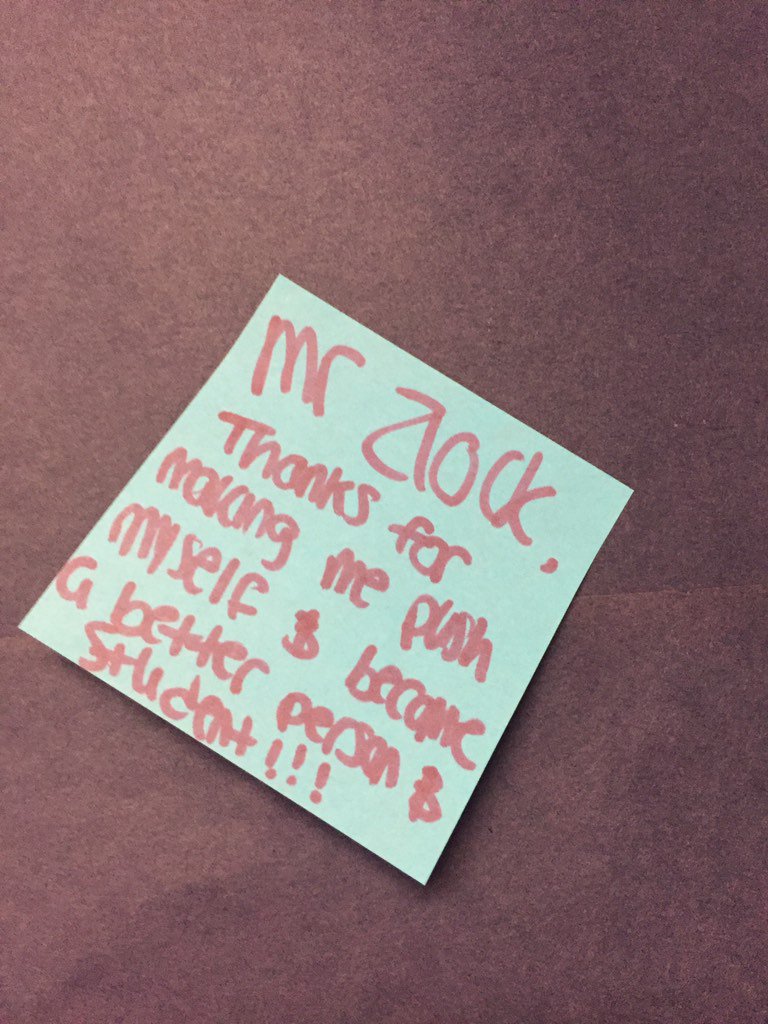 Mr Zlock,
Thanks for
making me push
myself & become
a better person &
student!!!